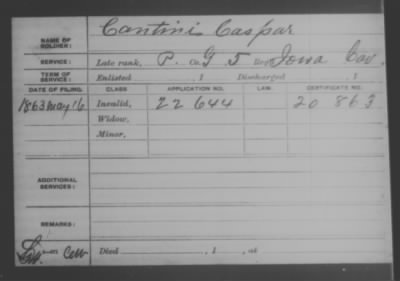 NAME OF SOLDIER: Cantini Caspar
SERVICE: Late rank, P. Co. G 5 Reg't Iowa Cav
TERM OF SERVICE: Enlisted , 1 Discharged , 1
DATE OF FILING. CLASS APPLICATION NO. LAW. CERTIFICATE NO.
1863 May 16 Invalid, 22 644 20 863
Widow,
Minor,
ADDITIONAL SERVICES:
REMARKS:
Died , 1 , at